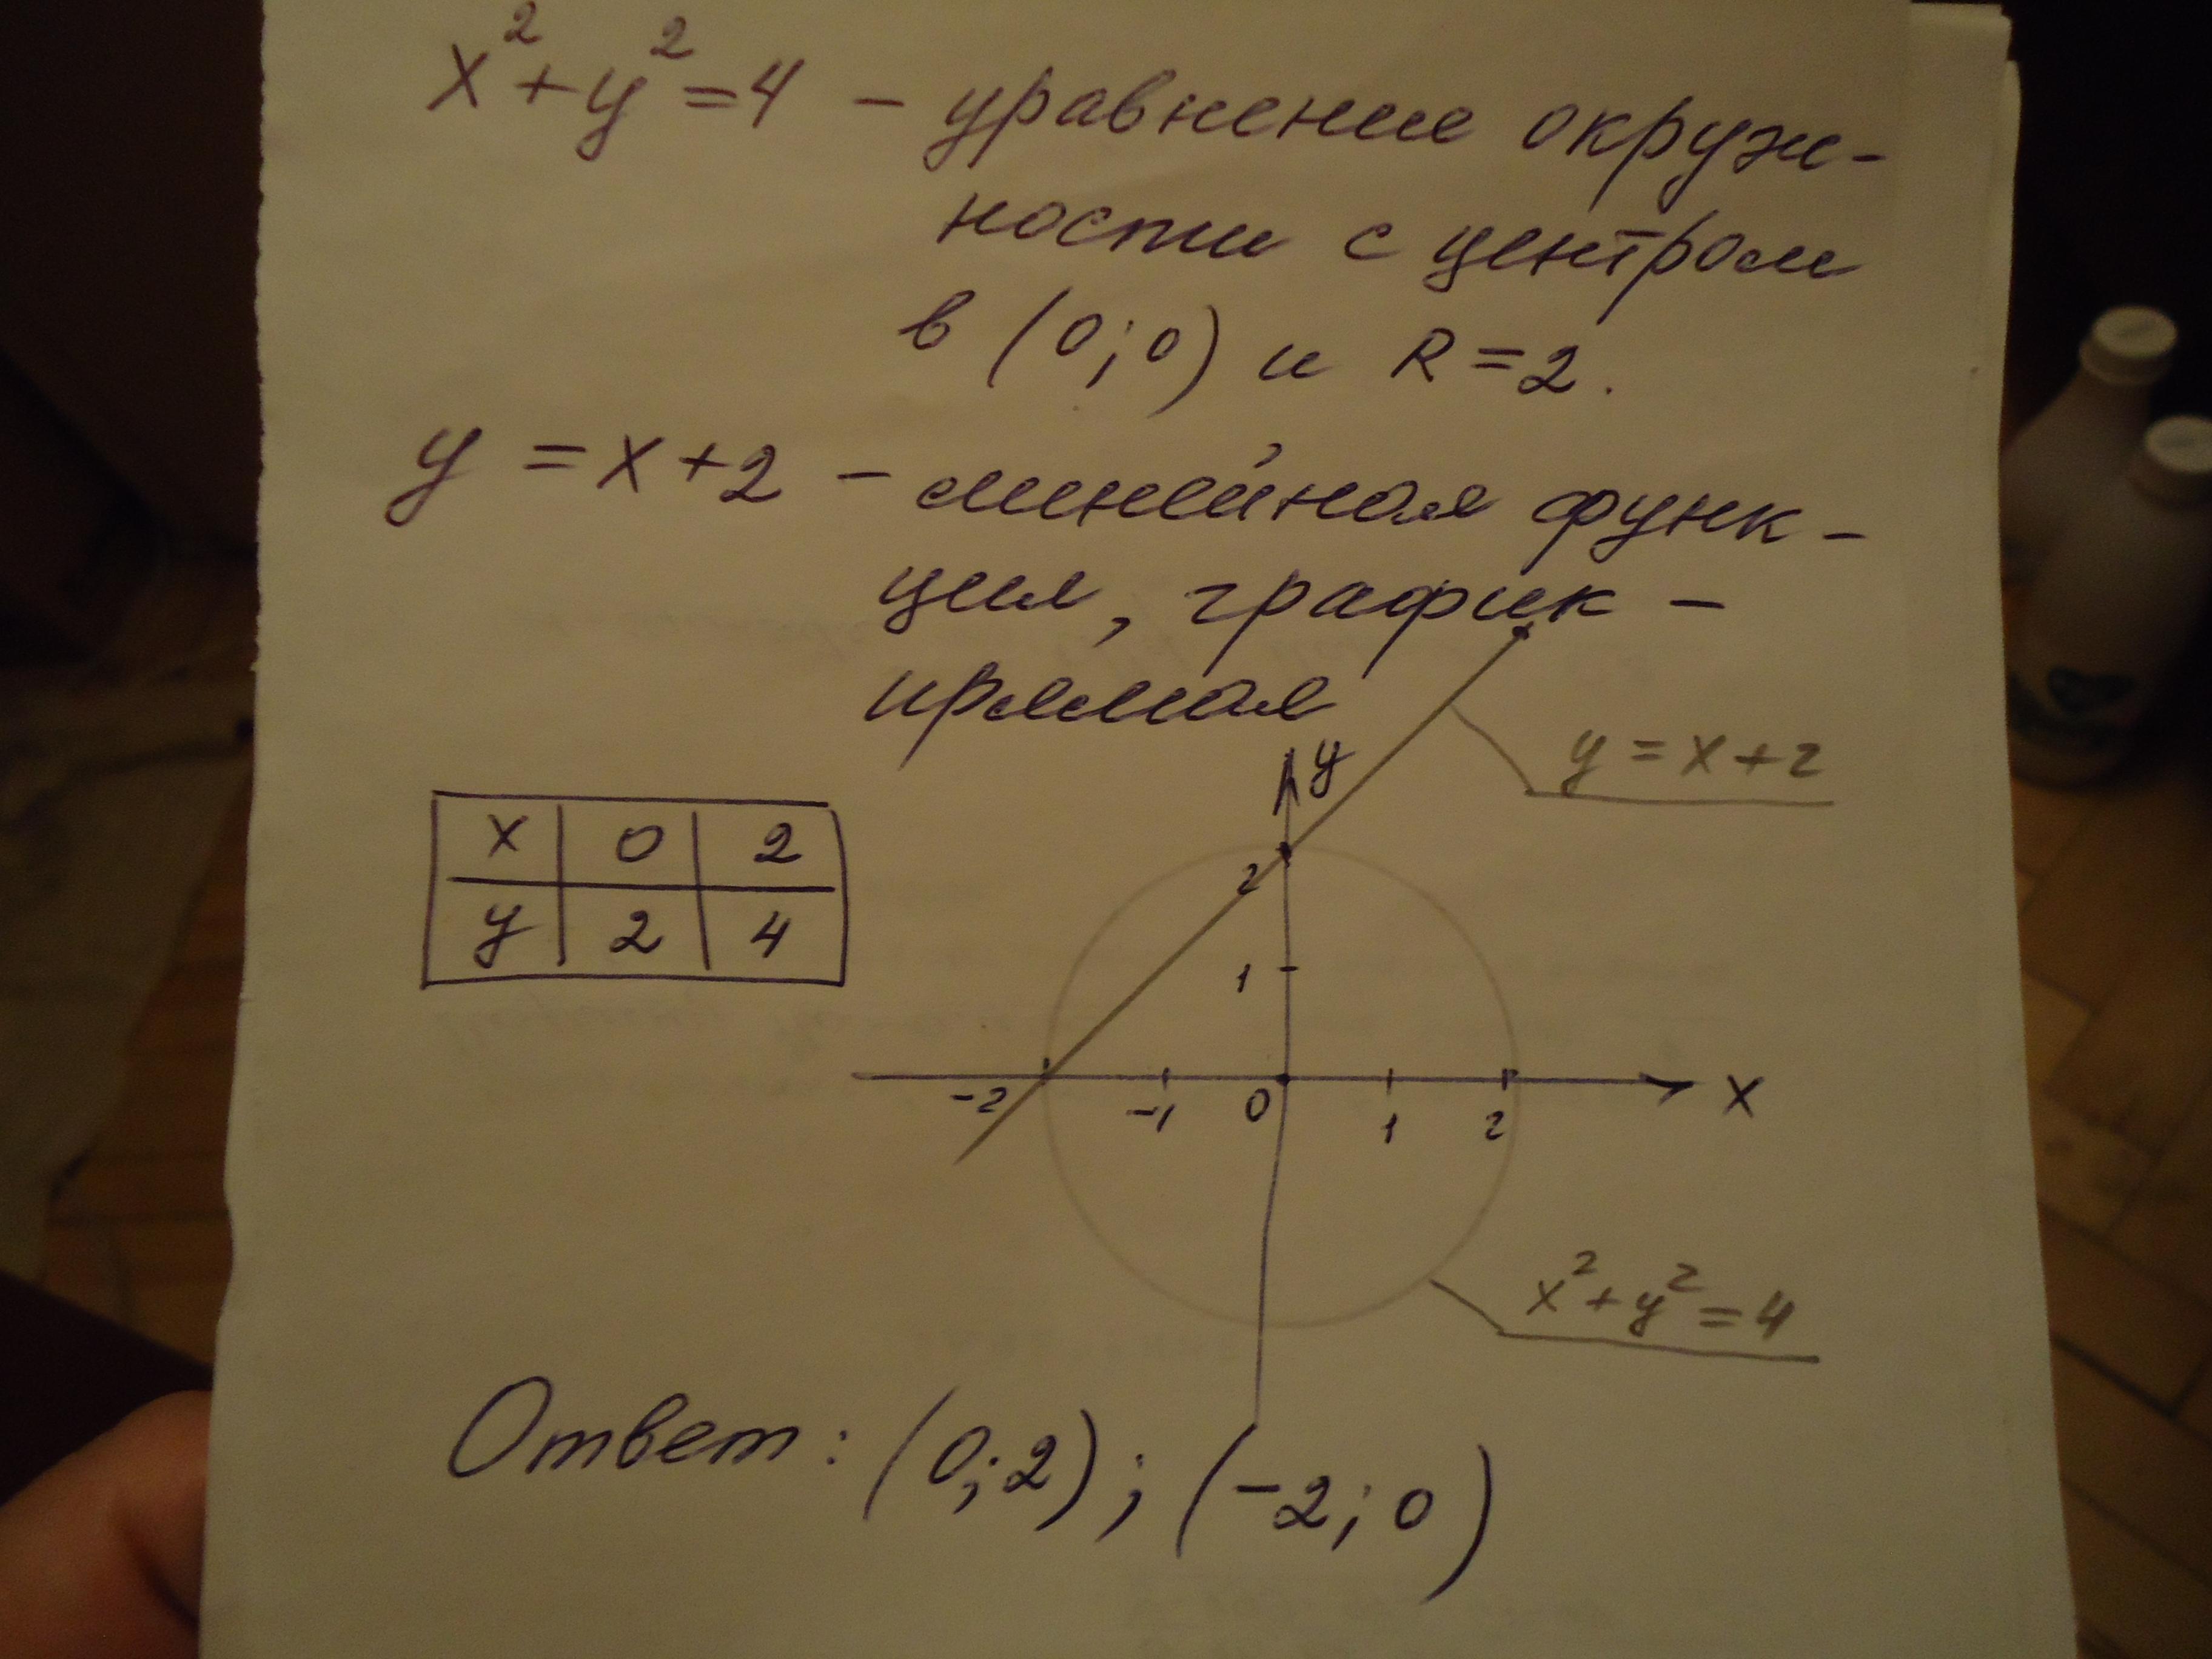 x²+y²=4 – уравнение окруж-
ности с центром
в (0;0) и R=2.
y = x+2 – линейная функ-
ция, график –
прямая
y = x+2
y
x | 0 | 2
y | 2 | 4
2
1
-2 -1 0 1 2 x
x²+y²=4
Ответ: (0;2); (-2;0)